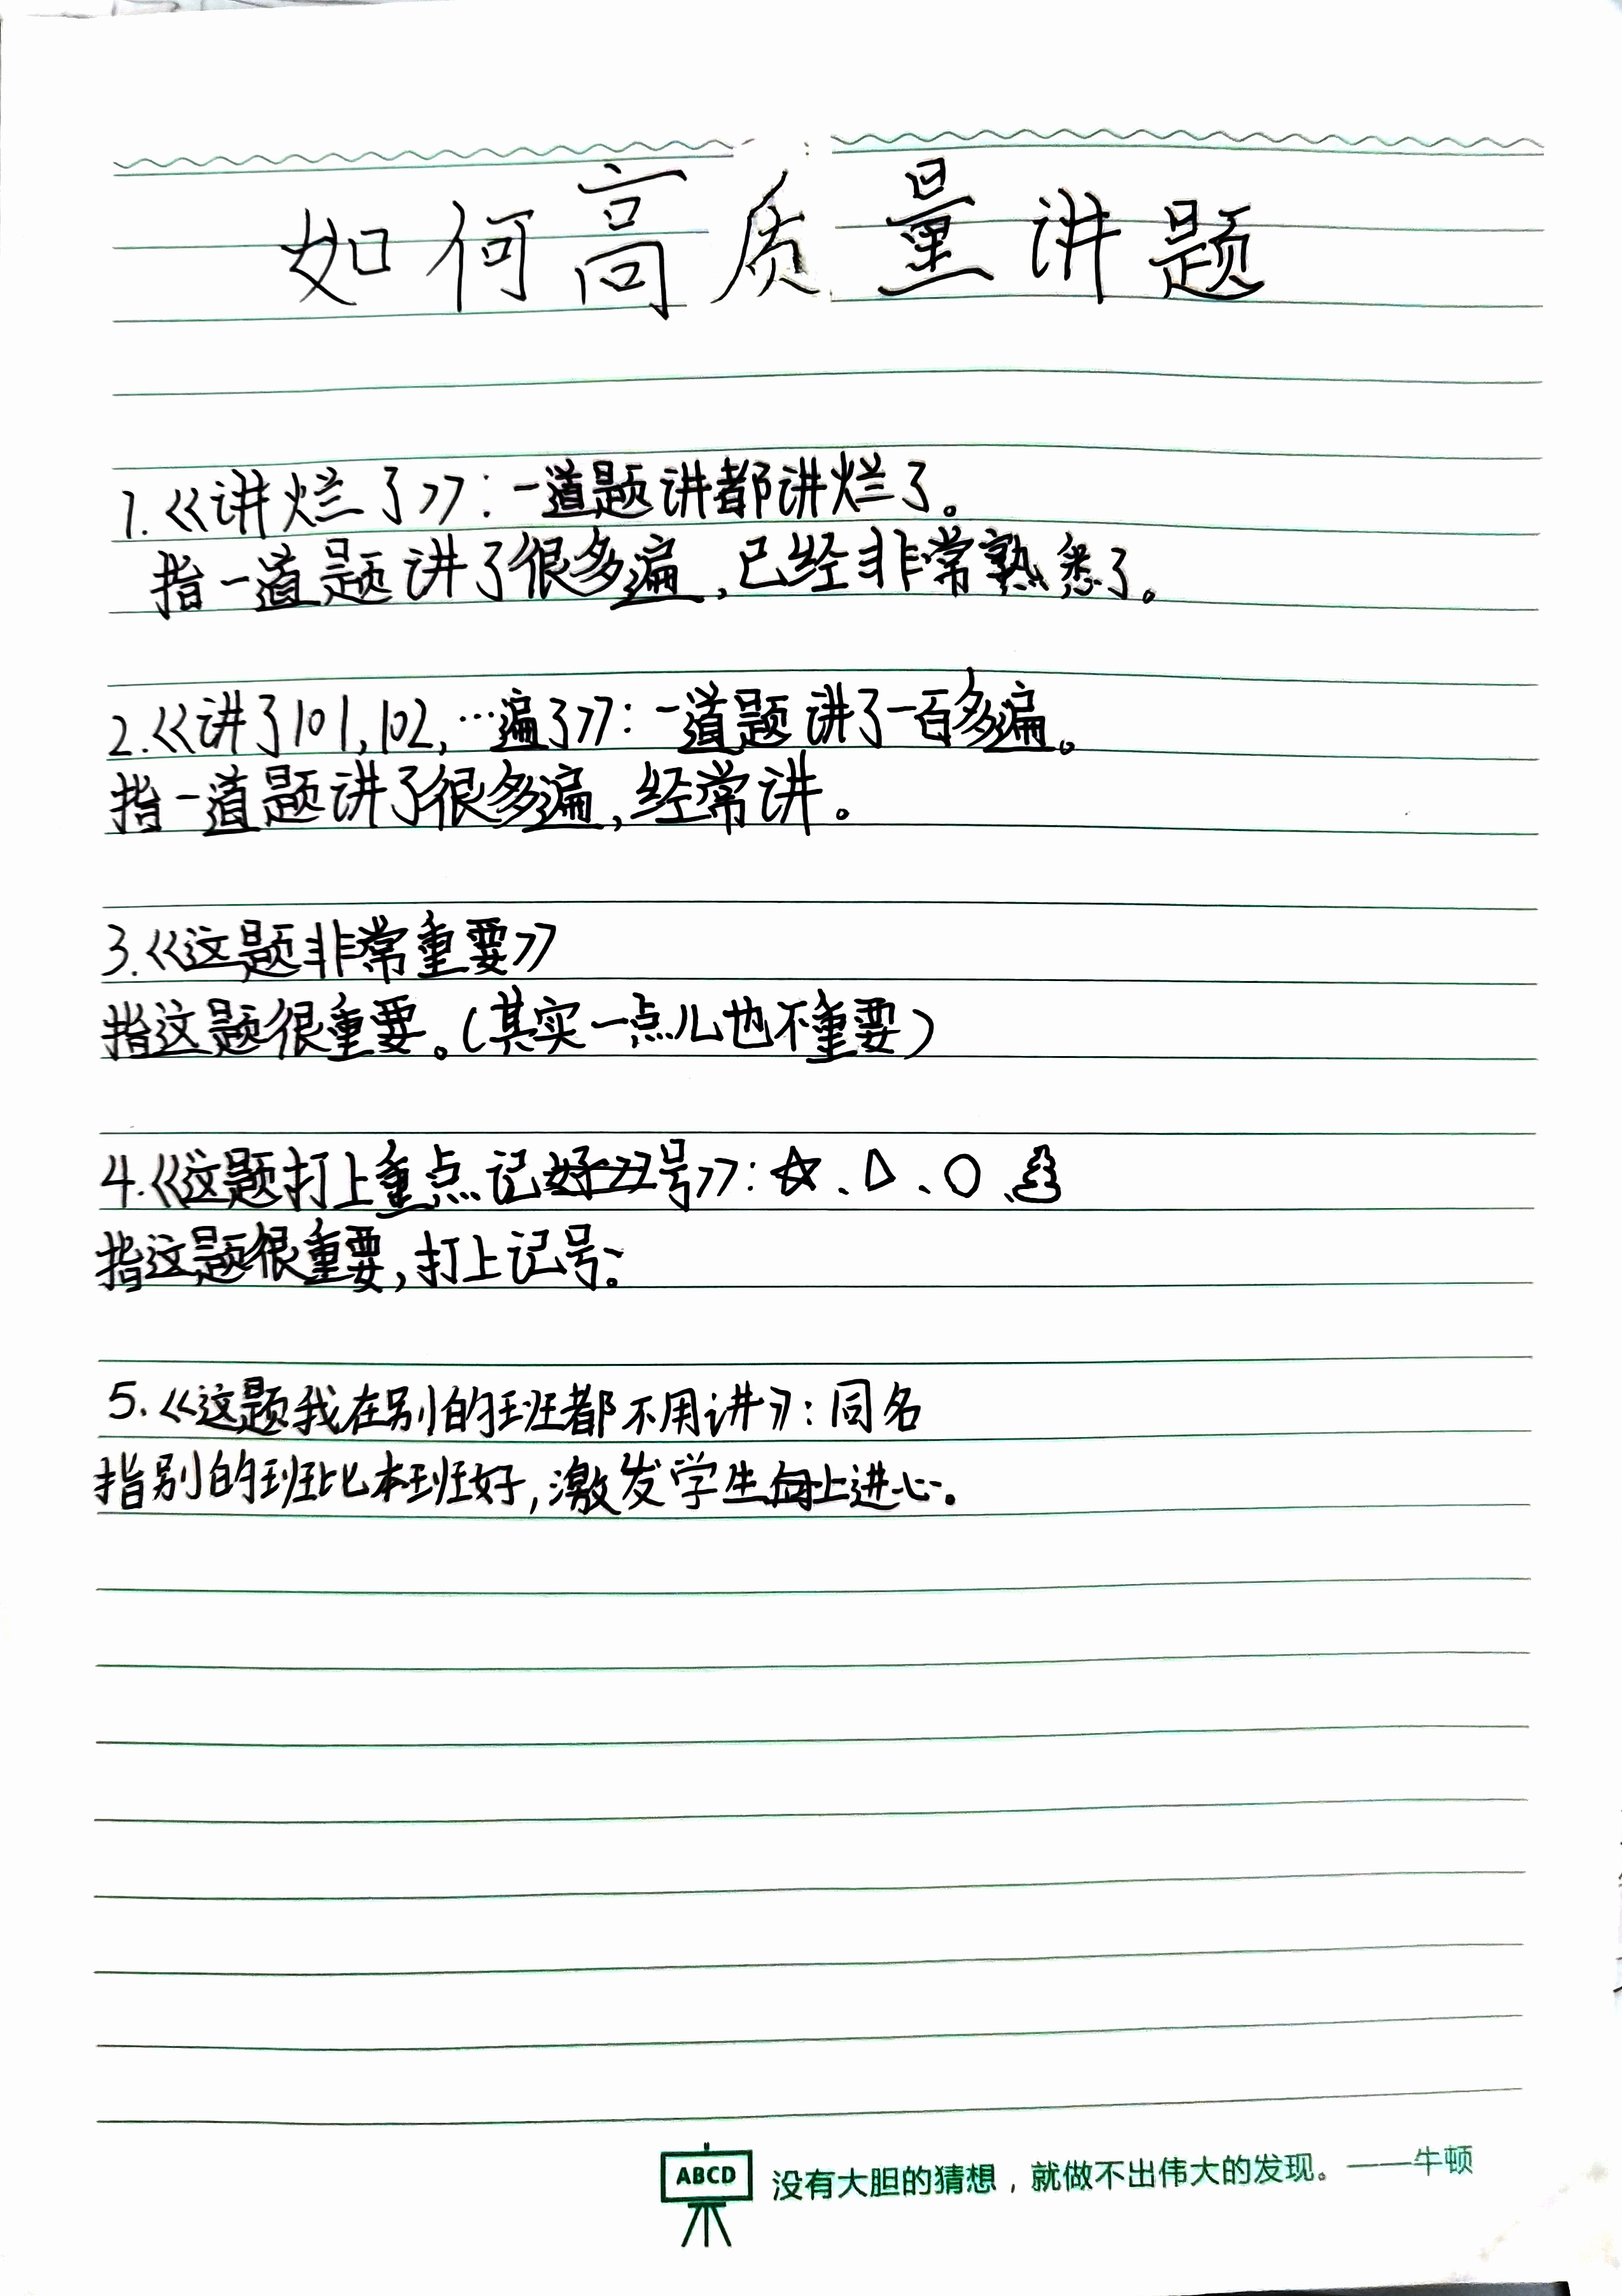 如何高质量讲题
1.《讲烂了》:一道题讲都讲烂了。
指一道题讲了很多遍,已经非常熟悉了。
2.《讲了101,102,…遍了》:一道题讲了一百多遍。
指一道题讲了很多遍,经常讲。
3.《这题非常重要》
指这题很重要。(其实一点儿也不重要)
4.《这题打上重点记号》:☆、△、○、
指这题很重要,打上记号。
5.《这题我在别的班都不用讲》:同名
指别的班比本班好,激发学生上进心。
ABCD 没有大胆的猜想,就做不出伟大的发现。——牛顿